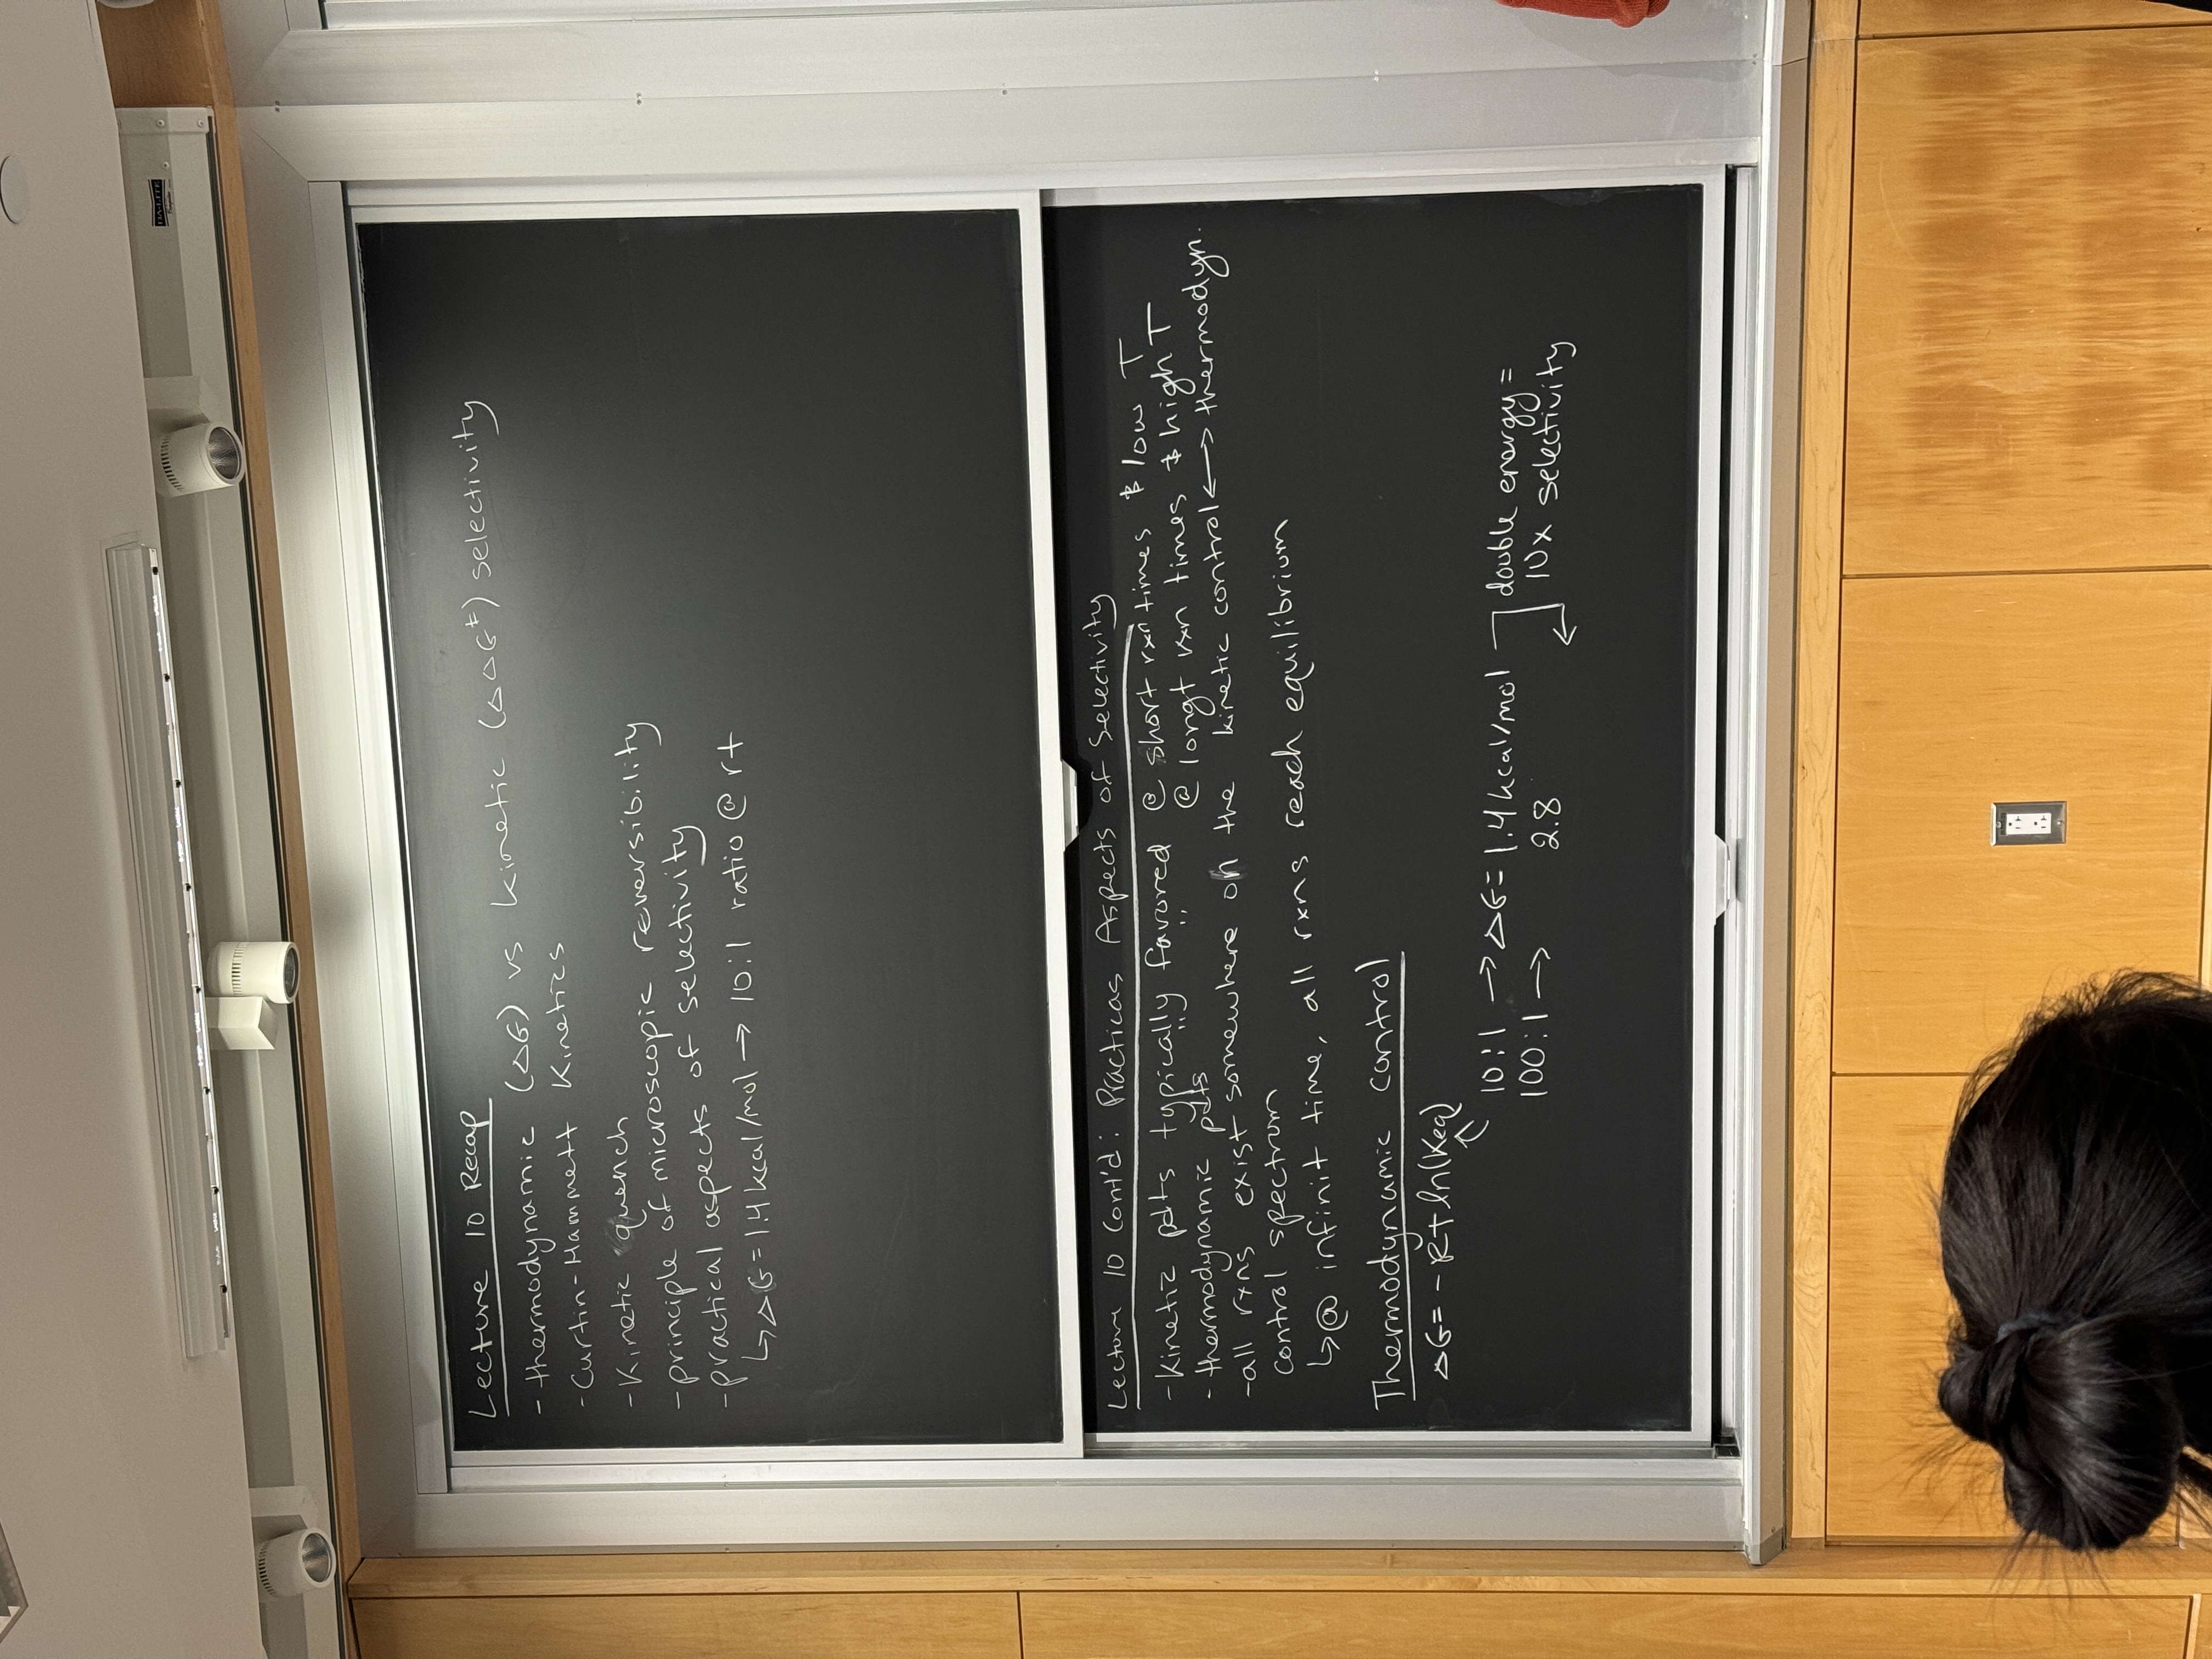 DA-LITE
Lecture 10 Recap
- thermodynamic (ΔG) vs kinetic (ΔΔG‡) selectivity
- Curtin-Hammett Kinetics
- Kinetic quench
- principle of microscopic reversibility
- practical aspects of selectivity
↳ ΔG = 1.4 kcal/mol → 10:1 ratio @ rt
Lecture 10 Cont'd: Practicas Aspects of Selectivity
- Kinetic pdts typically favored @ short rxn times & low T
- thermodynamic pdts " " @ longt rxn times & high T
- all rxns exist somewhere on the kinetic control ↔ thermodyn.
control spectrum
↳ @ infinit time, all rxns reach equilibrium
Thermodynamic control
ΔG = - RT ln(Keq)
10:1 → ΔG = 1.4 kcal/mol double energy =
100:1 → 2.8 10x selectivity